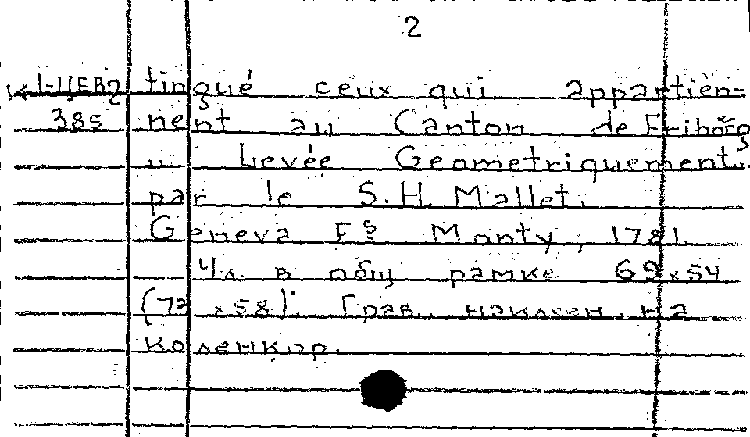 2
tingué ceux qui appartien-
385 nent au Canton de Fribórg
" Levée Geometriquement.
par le S.H. Mallet.
Geneva Fs Monty, 1781.
4л. в общ рамке 69х54
(72 х58). Грав. наклеен. на
коленкор.